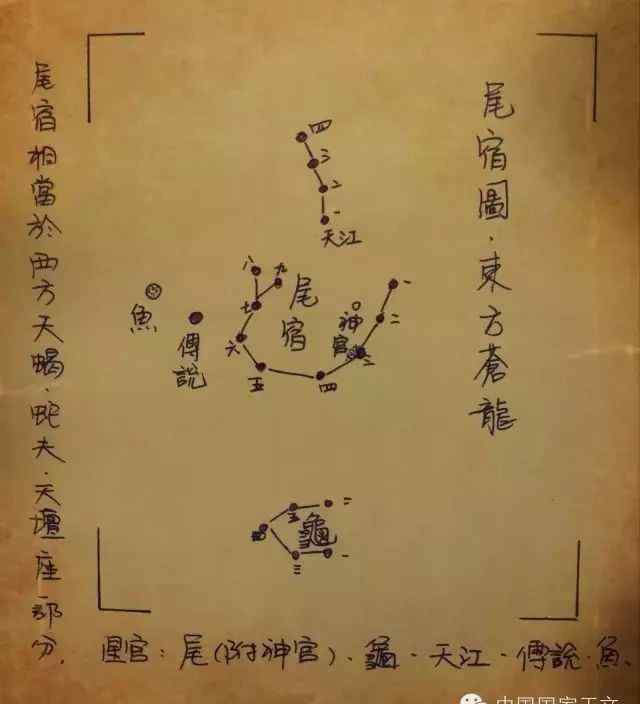 尾宿圖·東方蒼龍
四
三
二
一
天江
八
九
七
六
五
四
三
二
一
尾宿
神宮
魚
傅說
二
五
四
三
一
龜
尾宿相當於西方天蝎·蛇夫·天壇座部分.
星官：尾(附神宮)、龜·天江·傅說·魚、
中国国家天文